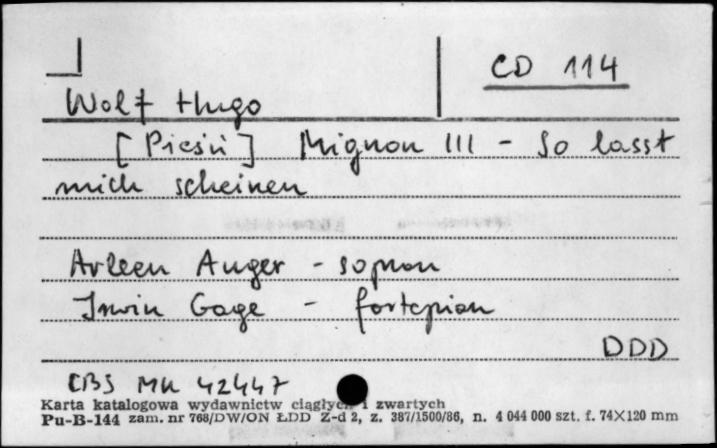 CD 114
Wolf Hugo
[Pieśń] Mignon III - So lasst
mich scheinen
Arleen Auger - sopran
Irwin Gage - fortepian
DDD
CBS MK 42447
Karta katalogowa wydawnictw ciągłych i zwartych
Pu-B-144 zam. nr 768/DW/ON ŁDD Z-d 2, z. 387/1500/86, n. 4 044 000 szt. f. 74×120 mm